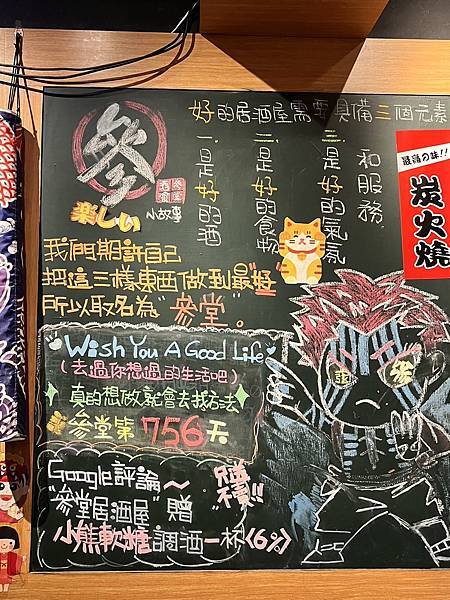 好的居酒屋需要具備三個元素
一是好的酒
二是好的食物
三是好的氣氛
和服務
參
小故事
楽しい
我們期許自己
把這三樣東西做到最好
所以取名為"參堂"。
最強の味!!
炭火燒
Wish You A Good Life
(去過你想過的生活吧)
真的想做就會去找方法
參堂第756天
Google評論~
"參堂居酒屋"贈
小熊軟糖調酒一杯<6%>